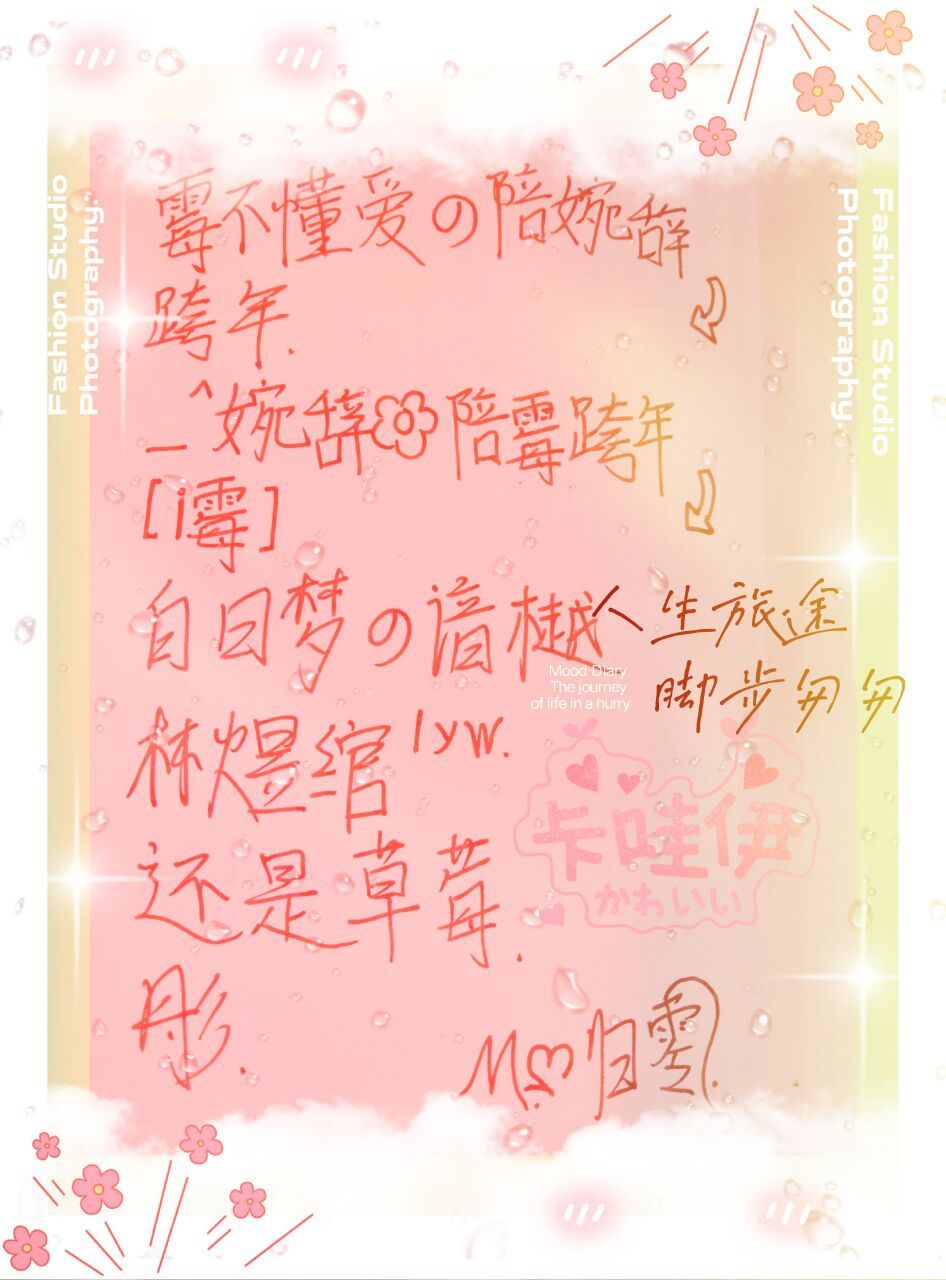 Fashion Studio
Photography.
Fashion Studio
Photography.
霉不懂爱の陪婉辞
跨年.
_^婉辞陪霉跨年
[i霉]
白日梦の谙樾
人生旅途
脚步匆匆
Mood Diary
The journey
of life in a hurry
林煜绾lyw.
卡哇伊
かわいい
还是草莓.
彤.
归雲